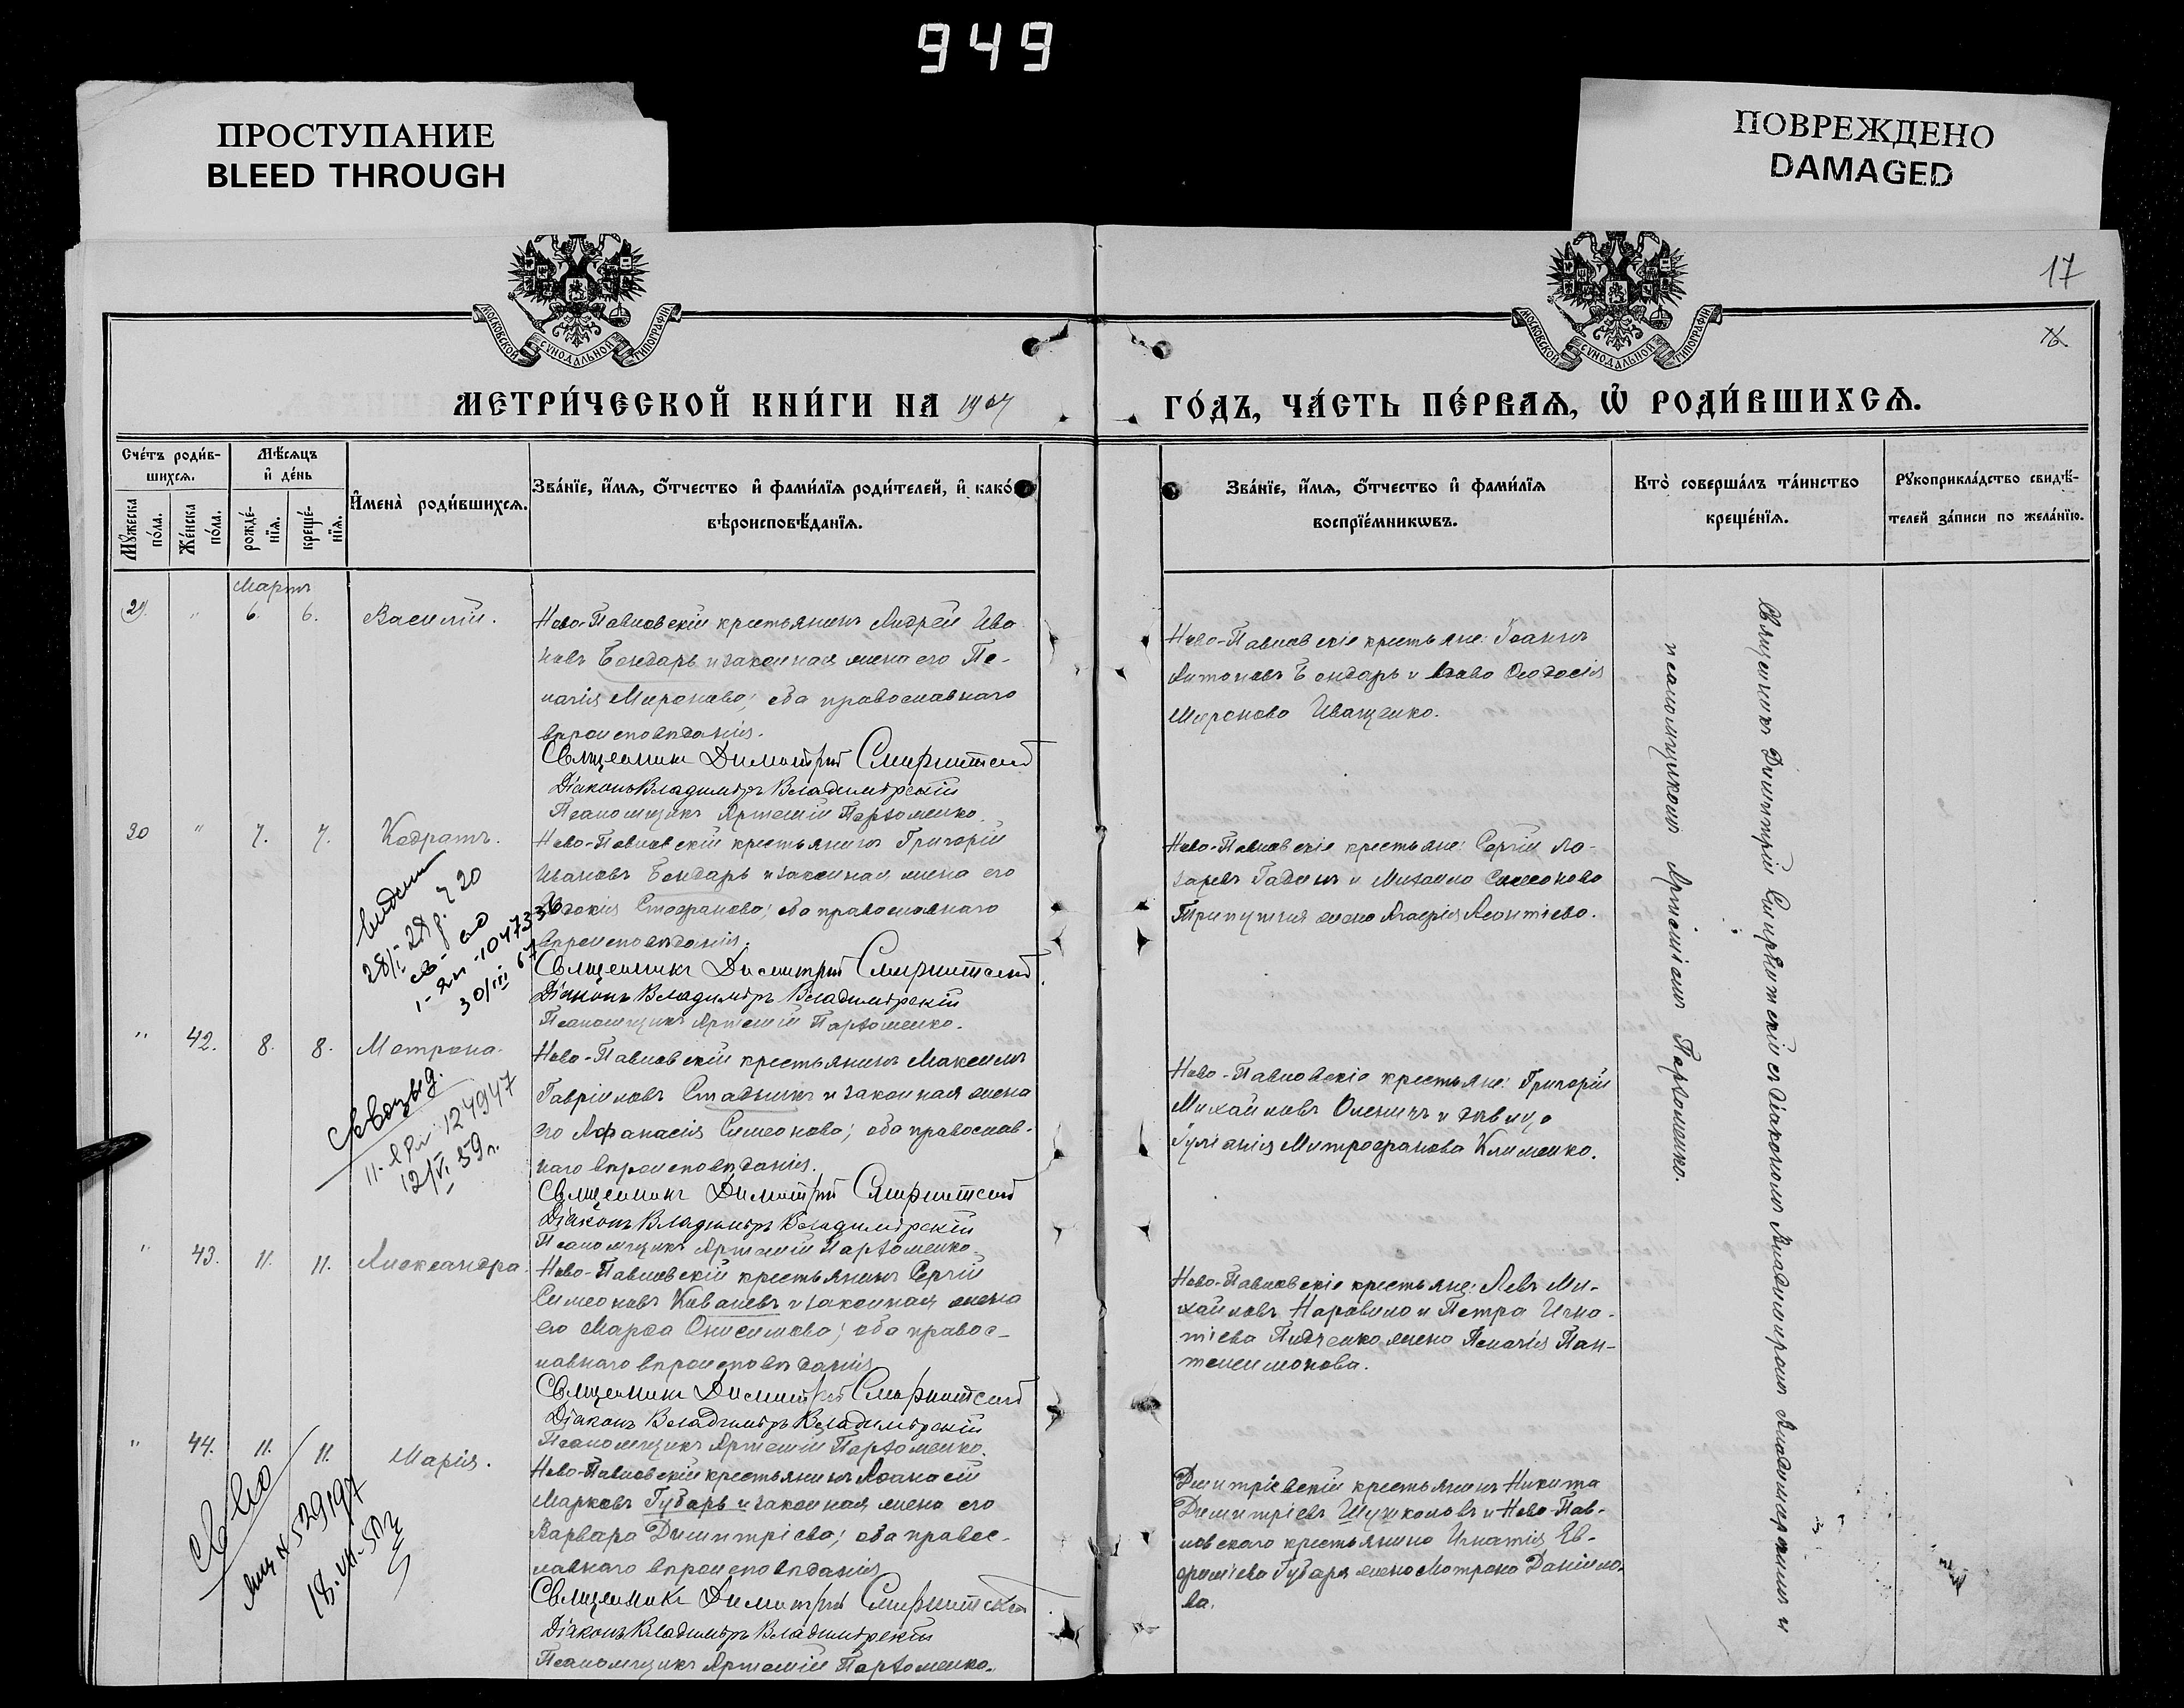 949
ПРОСТУПАНИЕ
BLEED THROUGH
ПОВРЕЖДЕНО
DAMAGED
17
16.
МОСКОВСКОЙ СѴНОДАЛЬНОЙ ТИПОГРАФІИ
МОСКОВСКОЙ СѴНОДАЛЬНОЙ ТИПОГРАФІИ
МЕТРИ́ЧЕСКОЙ КНИ́ГИ НА 1907
ГО́ДЪ, ЧА́СТЬ ПЕ́РВАѦ, Ѡ҆ РОДИ́ВШИХСѦ.
Сче́тъ роди́в-
шихсѧ.
Мꙋжеска по́ла.
Же́нска по́ла.
Мѣ́сѧцъ
и҆ де́нь
рожде́-
нїѧ.
креще́-
нїѧ.
И҆мена̀ роди́вшихсѧ.
Зва́нїе, и҆́мѧ, ѻ҆́тчество и҆ фами́лїѧ роди́телей, и҆ како́
вѣроисповѣ́данїѧ.
Зва́нїе, и҆́мѧ, ѻ҆́тчество и҆ фами́лїѧ
воспрїе́мникѡвъ.
Кто̀ соверша́лъ та́инство
креще́нїѧ.
Рꙋкоприкла́дство свидѣ́-
телей за́писи по жела́нїю.
Мартъ
29. " 6. 6. Василій.
Ново-Павловскій крестьянинъ Андрей Ива
новъ Бондарь и законная жена его Пе-
лагія Миронова; оба православнаго
вѣроисповѣданія.
Священникъ Димитрій Смирнитскій
Діаконъ Владиміръ Владимірскій
Псаломщикъ Артемій Пархоменко.
Ново-Павловскіе крестьяне: Іоаннъ
Антоновъ Бондарь и вдова Ѳеодосія
Миронова Иващенко.
30 " 7. 7. Кодратъ.
Ново-Павловскій крестьянинъ Григорій
Ивановъ Бондарь и законная жена его
Евдокія Стефанова; оба православнаго
вѣроисповѣданія.
Священникъ Димитрій Смирнитскій
Діаконъ Владиміръ Владимірскій
Псаломщикъ Артемій Пархоменко.
28/I
1047336
30/III 67
Ново-Павловскіе крестьяне: Сергій Ла-
заревъ Гадинъ и Михаила Симеонова
Трипутня жена Агафія Леонтіева.
" 42. 8. 8. Матрона.
Ново-Павловскій крестьянинъ Максимъ
Гавріиловъ Стадникъ и законная жена
его Афанасія Симеонова; оба православ-
наго вѣроисповѣданія.
Священникъ Димитрій Смирнитскій
Діаконъ Владиміръ Владимірскій
Псаломщикъ Артемій Пархоменко.
124947
12/VI 59г.
Ново-Павловскіе крестьяне: Григорій
Михайловъ Оленичъ и дѣвица
Іуліанія Митрофанова Клименко.
" 43. 11. 11. Александра.
Ново-Павловскій крестьянинъ Сергій
Симеоновъ Ковалевъ и законная жена
его Марѳа Онисимова; оба правос-
лавнаго вѣроисповѣданія
Священникъ Димитрій Смирнитскій
Діаконъ Владиміръ Владимірскій
Псаломщикъ Артемій Пархоменко.
Ново-Павловскіе крестьяне: Левъ Ми-
хайловъ Наровило и Петра Игна-
тіева жена Пелагія Пан-
телеимонова.
" 44. 11. 11. Марія.
Ново-Павловскій крестьянинъ Аѳанасій
Марковъ Губарь и законная жена его
Варвара Димитріева; оба правос-
лавнаго вѣроисповѣданія
Священникъ Димитрій Смирнитскій
Діаконъ Владиміръ Владимірскій
Псаломщикъ Артемій Пархоменко.
N 529197
Димитріевскій крестьянинъ Никита
Димитріевъ и Ново-Пав-
ловскаго крестьянина Игнатія Ев-
фиміева Губаря жена Матрона Даніило-
ва.
Священникъ Димитрій Смирнитскій съ діакономъ Владиміромъ Владимірскимъ и
псаломщикомъ Артеміемъ Пархоменко.